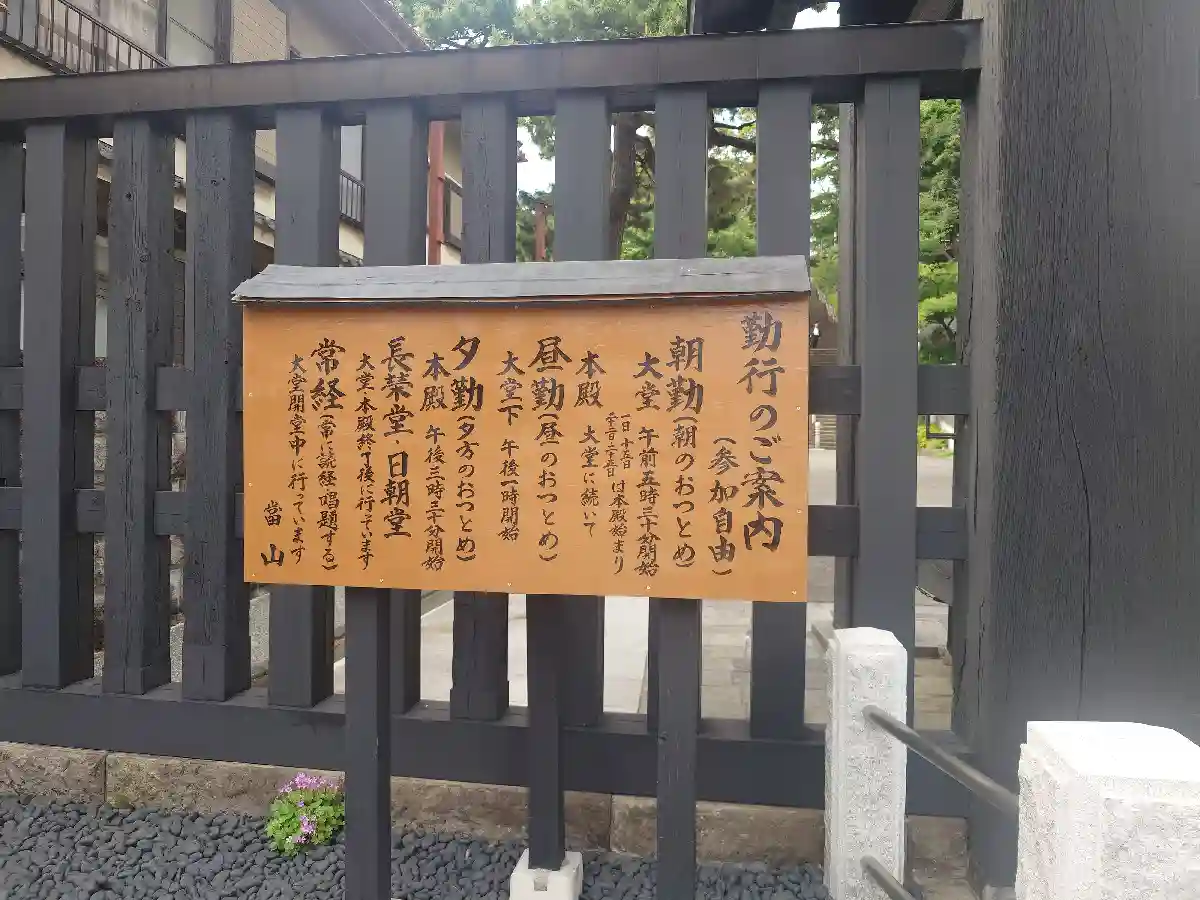 勤行のご案内
(参加自由)
朝勤(朝のおつとめ)
大堂 午前五時三十分開始
一日・十五日 は本殿始まり
本殿 大堂に続いて
昼勤(昼のおつとめ)
大堂下 午後一時開始
夕勤(夕方のおつとめ)
本殿 午後三時三十分開始
長榮堂・日朝堂
大堂・本殿終了後に行そいます
常経(常に読経唱題する)
大堂開堂中に行っています
當山